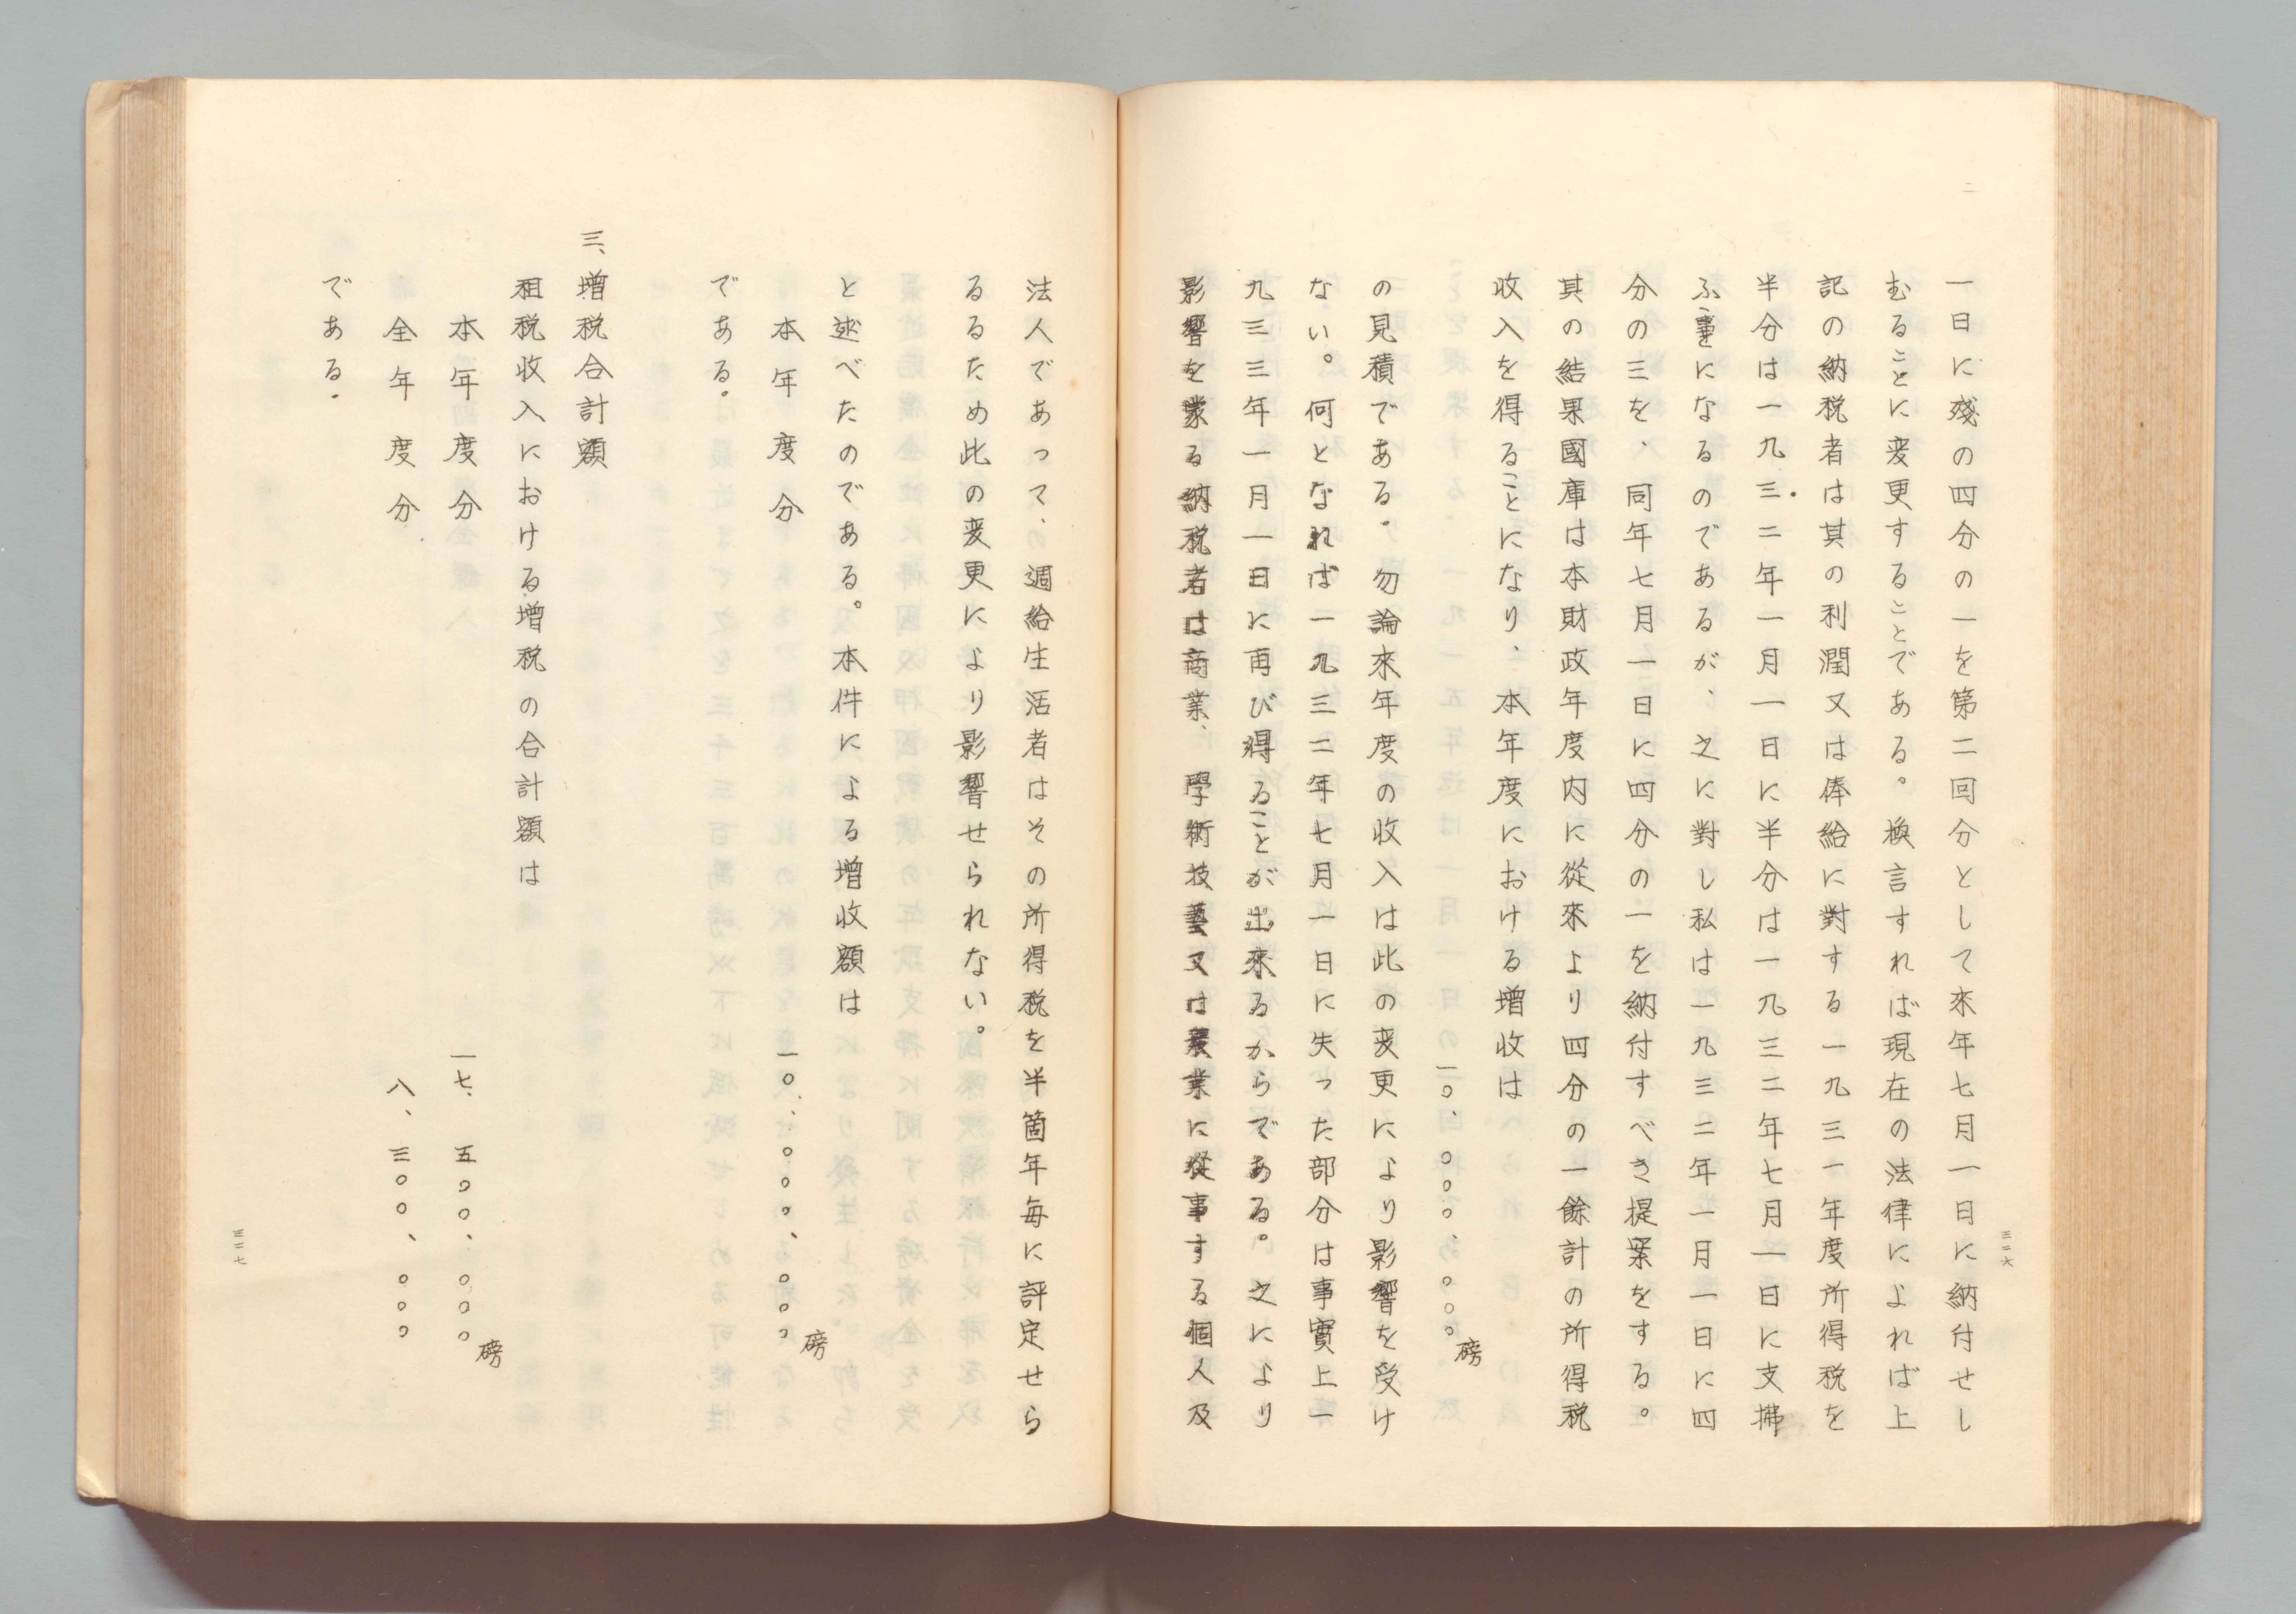 三二六
一日に殘の四分の一を第二回分として來年七月一日に納付せし
むることに変更することである。換言すれば現在の法律によれば上
記の納税者は其の利潤又は俸給に對する一九三一年度所得税を
半分は一九三二年一月一日に半分は一九三二年七月一日に支拂
ふ事になるのであるが、之に對し私は一九三二年一月一日に四
分の三を、同年七月一日に四分の一を納付すべき提案をする。
其の結果國庫は本財政年度内に從來より四分の一餘計の所得税
收入を得ることになり、本年度における增收は
一〇、〇〇〇、〇〇〇磅
の見積である。勿論來年度の收入は此の変更により影響を受け
ない。何となれば一九三二年七月一日に失った部分は事實上一
九三三年一月一日に再び得ることが出來るからである。之により
影響を蒙る納税者は商業、學術技藝又は農業に從事する個人及
法人であって、週給生活者はその所得税を半箇年毎に評定せら
るるため此の変更により影響せられない。
と述べたのである。本件による增收額は
本年度分 一〇、〇〇〇、〇〇〇磅
である。
三、增税合計額
租税收入における增税の合計額は
本年度分 一七、五〇〇、〇〇〇磅
全年度分 八、三〇〇、〇〇〇
である.
三二七